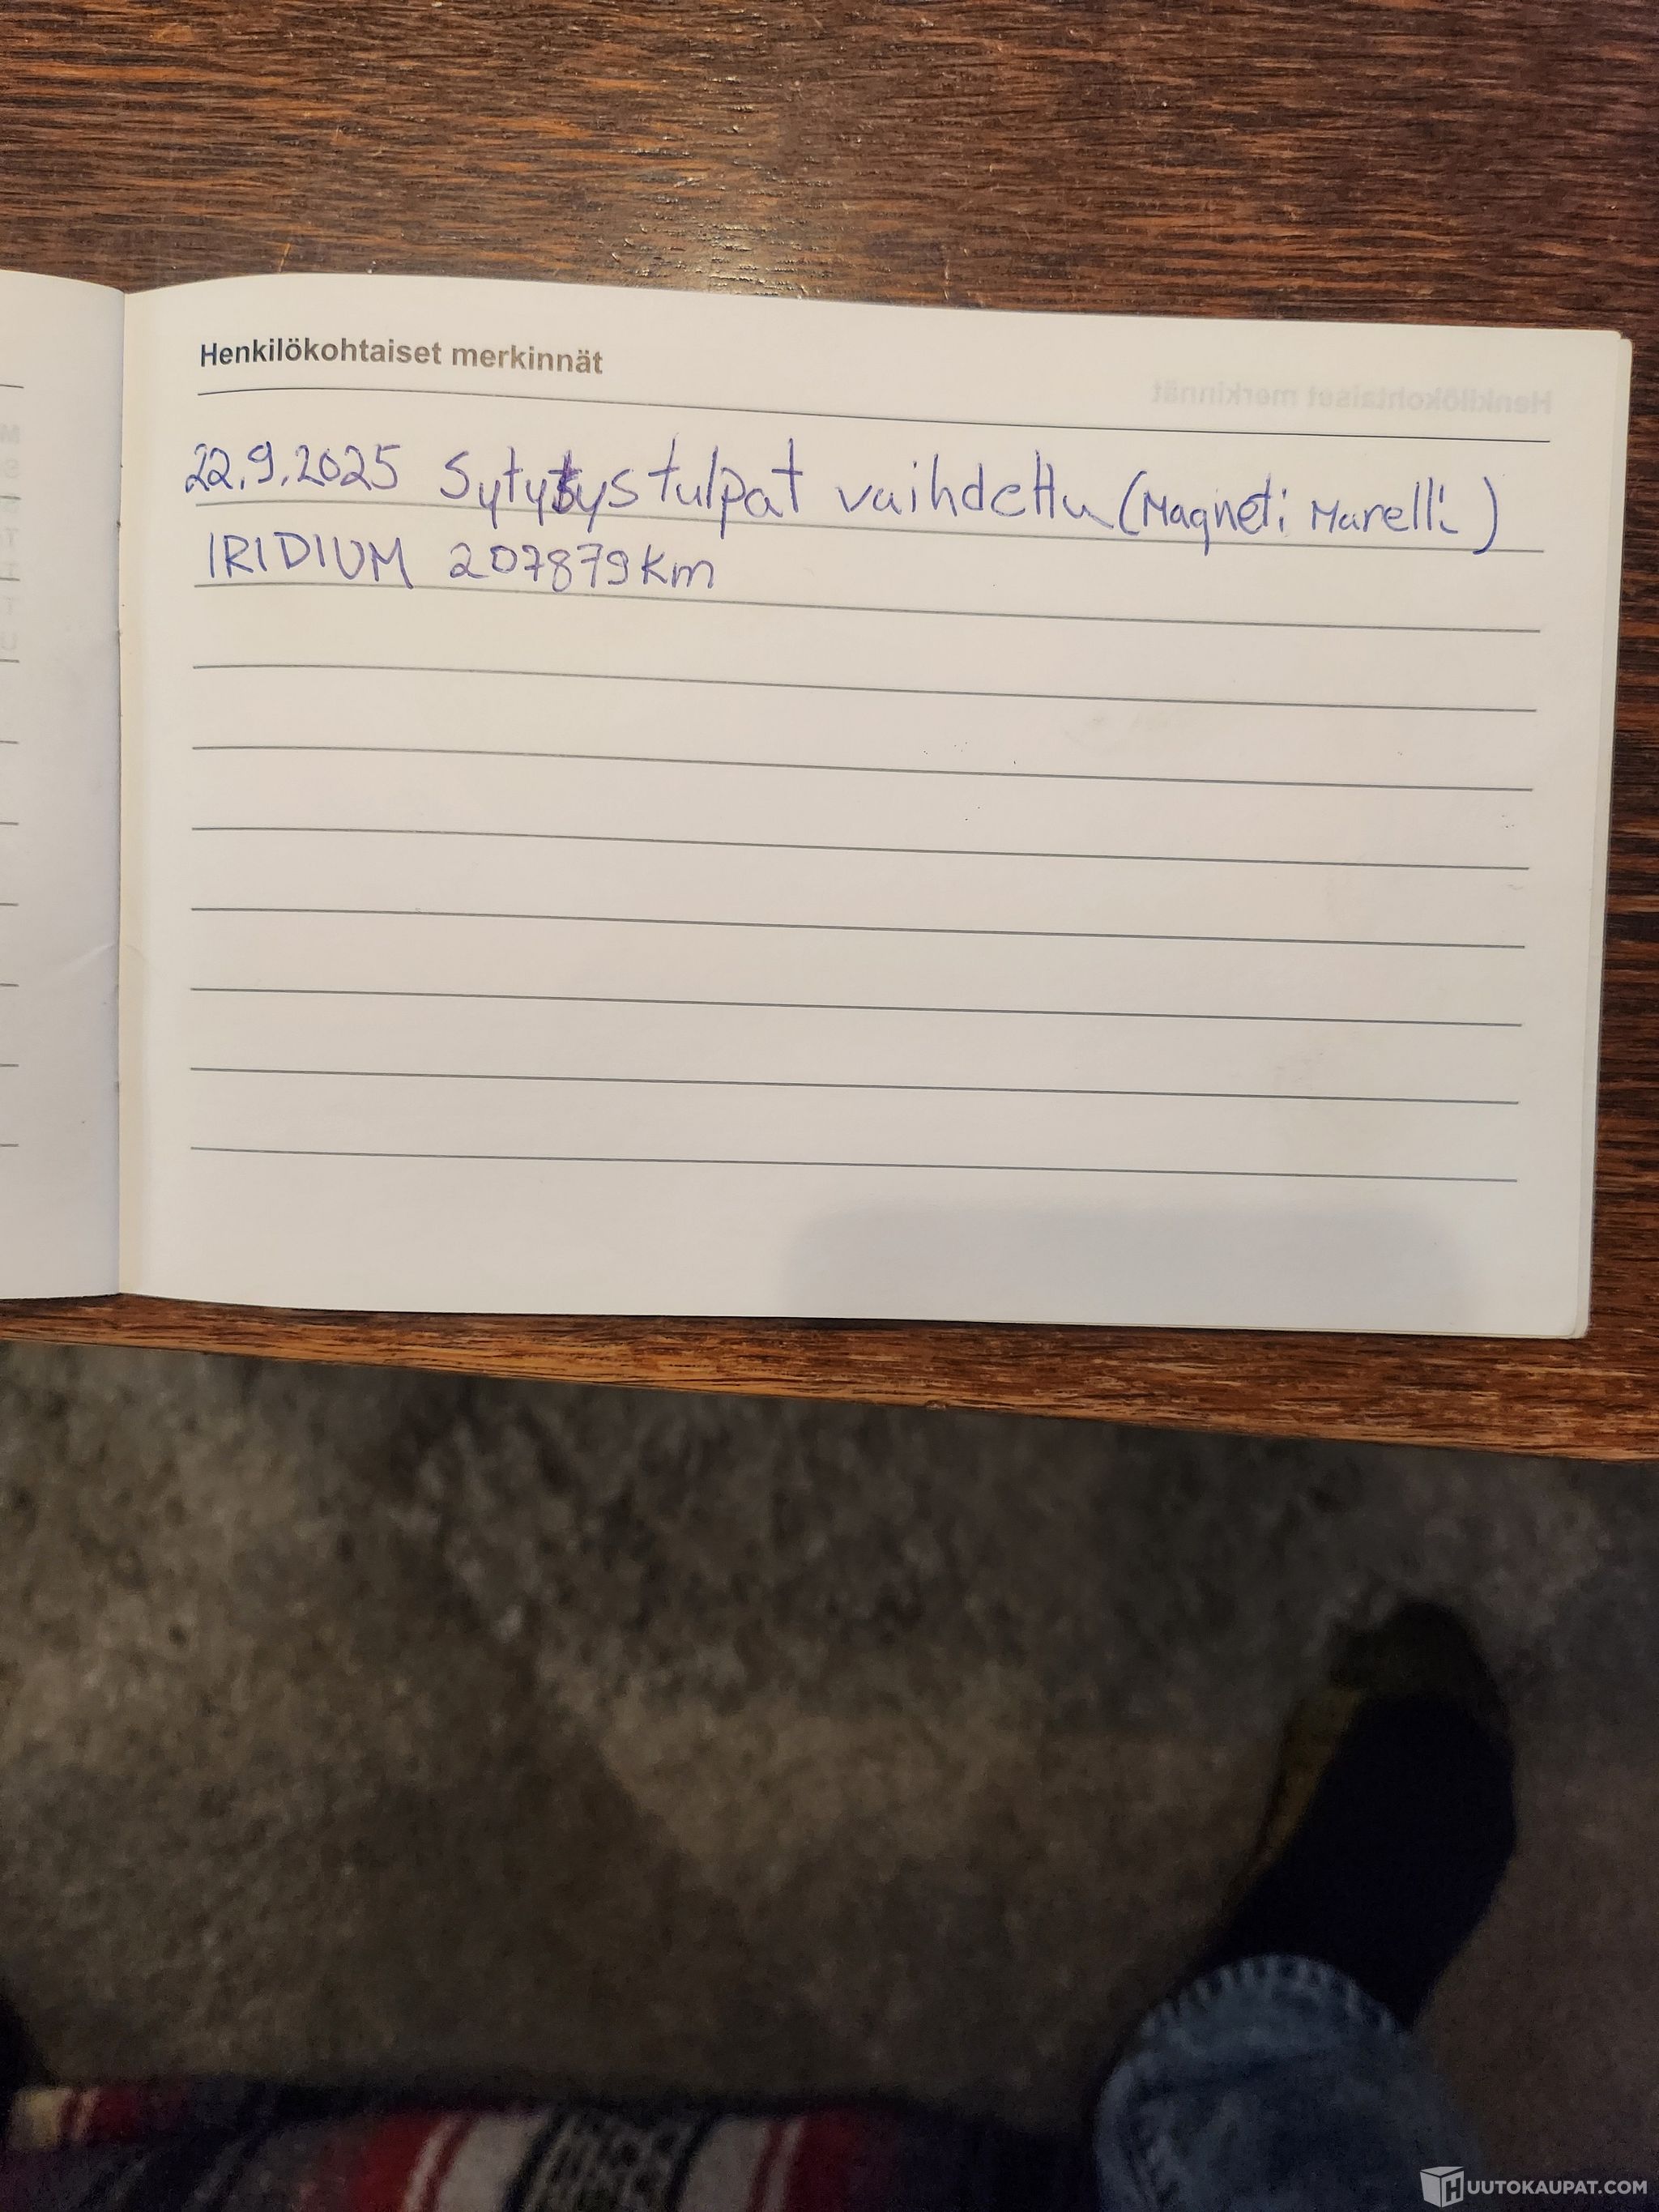 Henkilökohtaiset merkinnät
22.9.2025 Sytytystulpat vaihdettu (Magneti Marelli)
IRIDIUM 207879km
HUUTOKAUPAT.COM